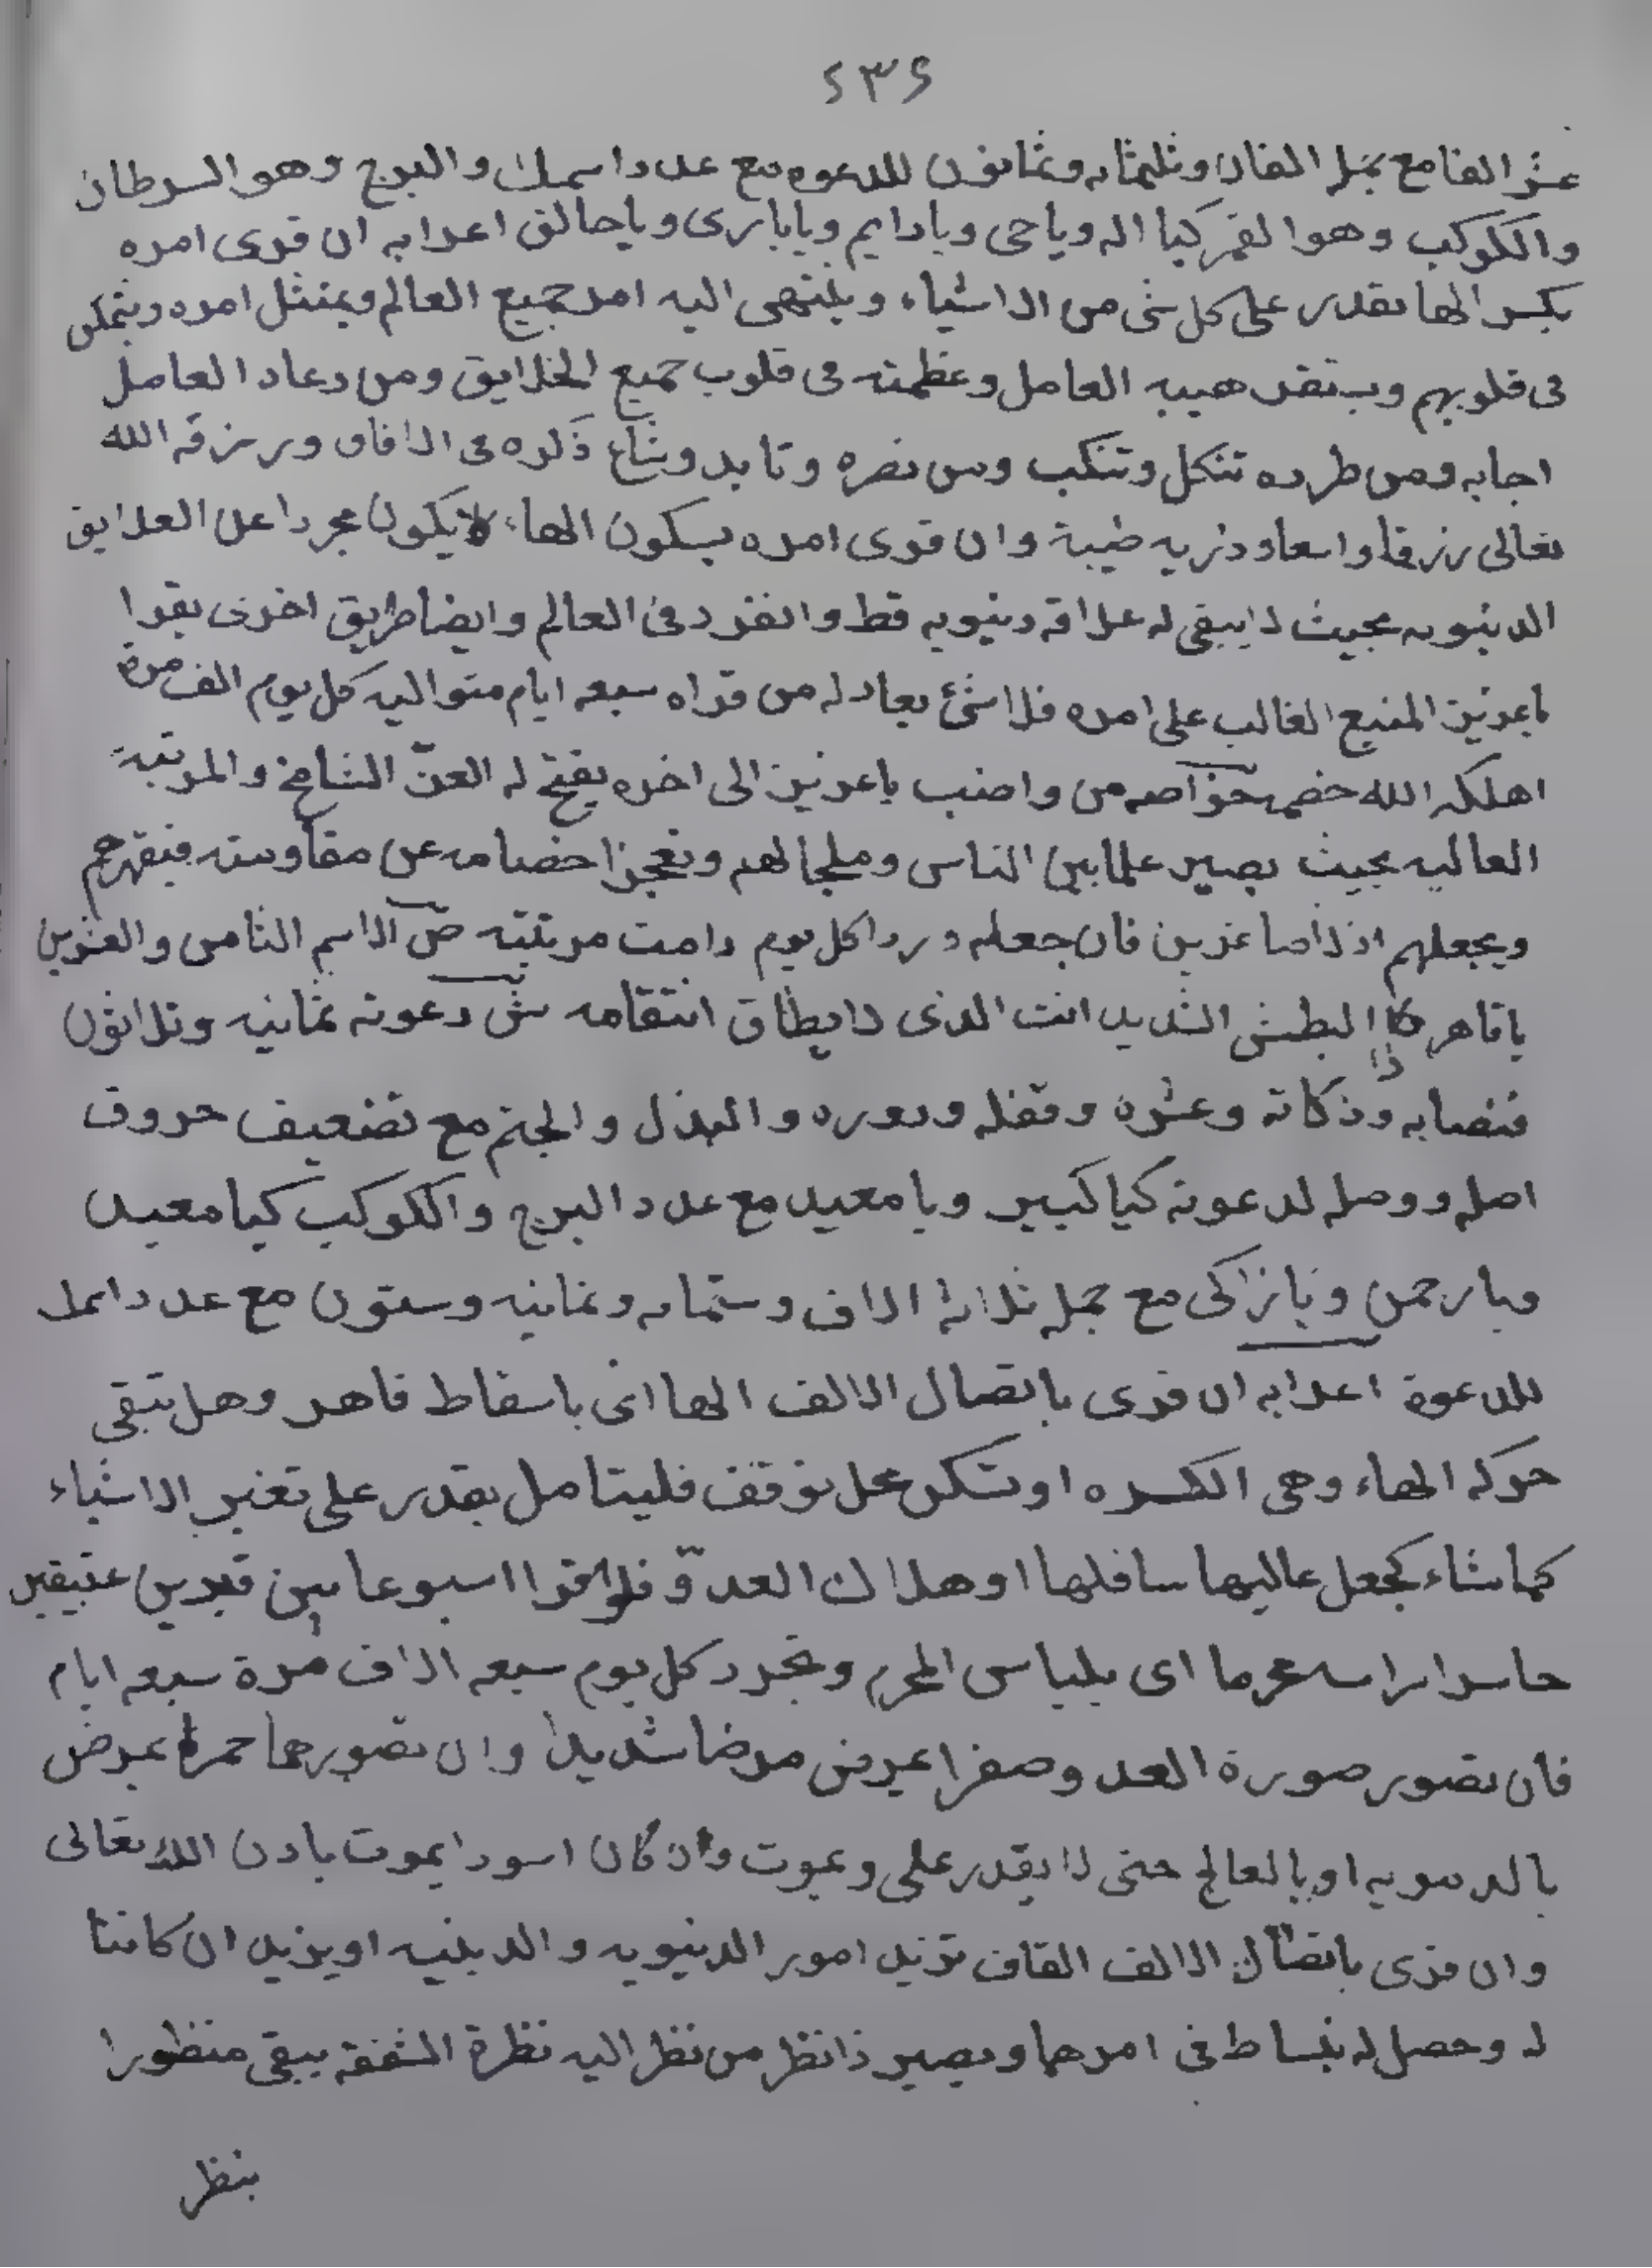 ٢٣٢
عشر الفا مع جمله الفان وثلثمايه وثمانون للدعوه مع عدد اسمك والبرج وهو السرطان
والكوكب وهو القمر كيا اله وياحى ويا دايم ويا بارى ويا خالق اعرابه ان قرى امره
بكسر الها يقدر على كل شى من الاشياء وينتهى اليه امر جميع العالم ويمتثل امره ويتمكن
فى قلوبهم ويستقر هيبه العامل وعظمته فى قلوب جميع الخلايق ومن دعاه العامل
اجابه ومن طرده تنكل وتنكب ومن نصره وتايد وشاع ذكره فى الافاق ورزقه الله
تعالى رزقا واسعا وذريه طيبة وان قرى امره بسكون الهاء لا يكون مجردا عن العلايق
الدنيويه بحيث لا يبقى له علاقه دنيويه قط وانفرد فى العالم وايضا طريق اخرى يقرا
يا عزيز المنيع الغالب على امره فلا شئ يعادله من قراه سبعه ايام متواليه كل يوم الف مرة
اهلكه الله خصمه خواصه من واضب يا عزيز الى اخره يفتح له العز الشامخ والمرتبة
العاليه بحيث يصير علما بين الناس وملجا لهم ويعجز اخصامه عن مقاومته فيقهرهم
ويجعلهم اذلا صاغرين فان جعله وردا كل يوم دامت مرتبته ص الاسم الثامن والعشرين
يا قاهر ذا البطش الشديد انت الذى لا يطاق انتقامه ش دعوته ثمانيه وثلاثون
فنصابه وزكاته وعشره وقفله ودوره والبذل والختم مع تضعيف حروف
اصله ووصله لدعوته كيا كبير ويا معيد مع عدد البرج والكوكب كيا معيد
ويا رحمن ويا زاكى مع جمله ثلاثه الاف وستمايه وثمانيه وستون مع عدد اسمك
للدعوة اعرابه ان قرى باتصال الالف الها انى باسقاط قاهر وهل تبقى
حركه الهاء وهى الكسره او تسكن محل توقف فليتامل يقدر على تغير الاشياء
كما شاء كجعل عاليها سافلها او هلاك العدوّ فلو قرا اسبوعا بين قبرين عتيقين
حاسرا راسه محرما اى بلباس المحرم وتجرد كل يوم سبعه الاف مرة سبعه ايام
فان تصور صورة العدو صفرا يمرض مرضا شديدا وان تصورها حمرا يمرض
بالدمويه او بالعالج حتى لا يقدر على ويموت وان كان اسود ايموت باذن الله تعالى
وان قرى باتصال الالف القاف تزيد امور الدنيويه والدينيه او يزيد ان كانتا
له وحصل له نبساط فى امرهما ويصير ذا نظر من نظر اليه نظرة الشفقه يبقى منظورا
بنظر